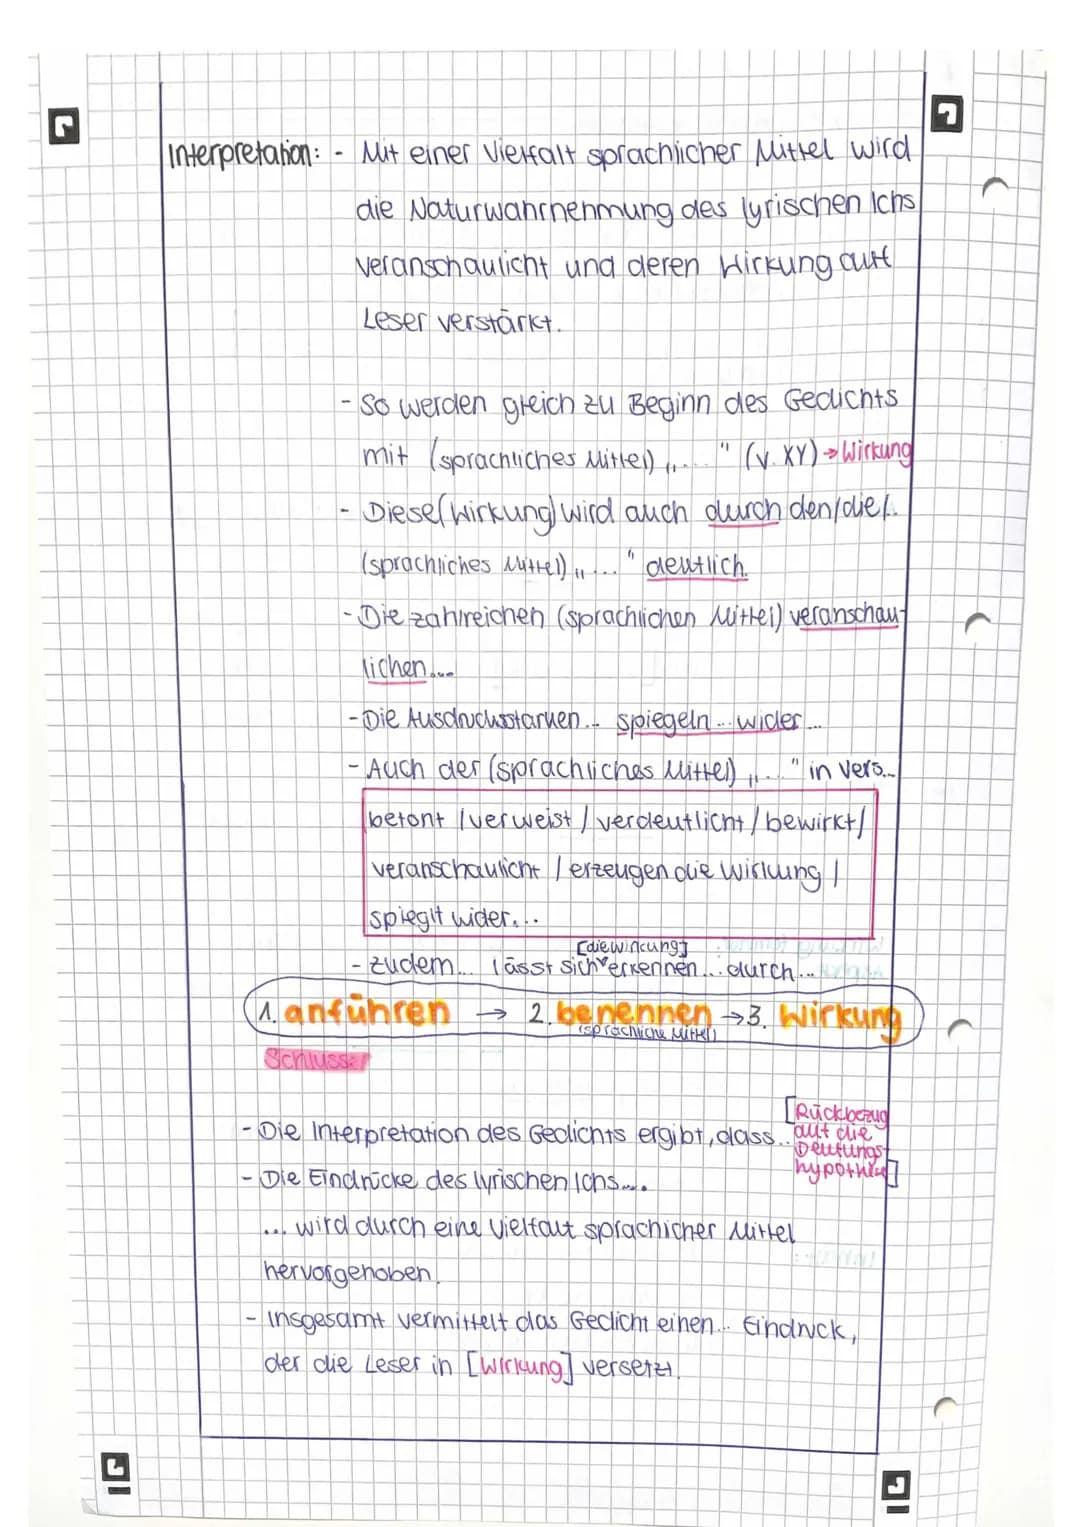 Interpretation: - Mit einer Vielfalt sprachlicher Mittel wird
die Naturwahrnehmung des lyrischen Ichs
veranschaulicht und deren Wirkung auf
Leser verstärkt.
- So werden gleich zu Beginn des Gedichts
mit (sprachliches Mittel) „...." (V. XY) → Wirkung
- Diese (Wirkung) wird auch durch den/die/..
(sprachliches Mittel) „..." deutlich.
- Die zahlreichen (sprachlichen Mittel) veranschau-
lichen...
- Die Ausdrucksstarken... spiegeln... wider...
- Auch der (sprachliches Mittel) „..." in Vers...
betont / verweist / verdeutlicht / bewirkt /
veranschaulicht / erzeugen die Wirkung /
spieglt wider...
[die Wirkung]
- zudem... lässt sich erkennen... durch...
1. anführen → 2. benennen → 3. Wirkung
(sprachliche Mittel)
Schluss:
- Die Interpretation des Gedichts ergibt, dass.. [Rückbezug
auf die
Deutungs-
hypothese]
- Die Eindrücke des lyrischen Ichs....
... wird durch eine Vielfalt sprachicher Mittel
hervorgehoben.
- Insgesamt vermittelt das Gedicht einen... Eindruck,
der die Leser in [Wirkung] versetzt.